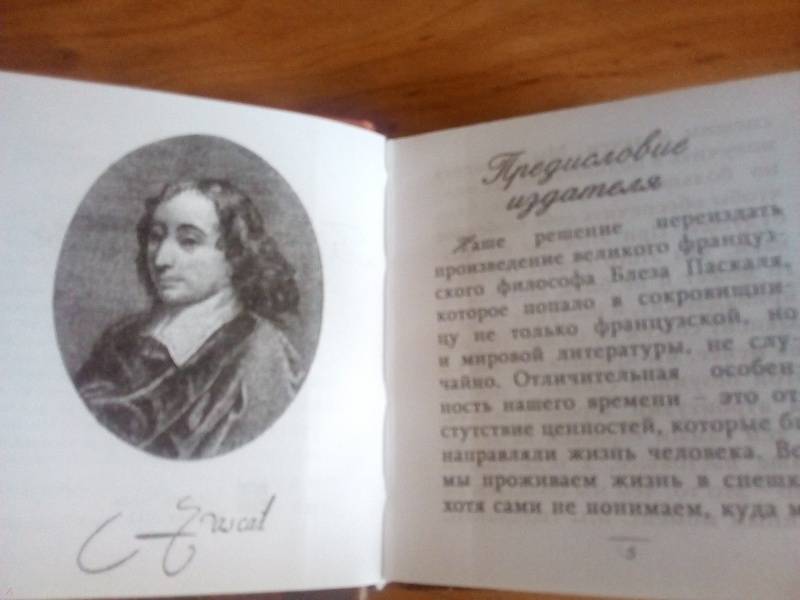 Pascal
Предисловие
издателя
Наше решение переиздать
произведение великого француз-
ского философа Блеза Паскаля,
которое попало в сокровищни-
цу не только французской, но
и мировой литературы, не слу-
чайно. Отличительная особен
ность нашего времени – это от
сутствие ценностей, которые б
направляли жизнь человека. Вс
мы проживаем жизнь в спешк
хотя сами не понимаем, куда м
5